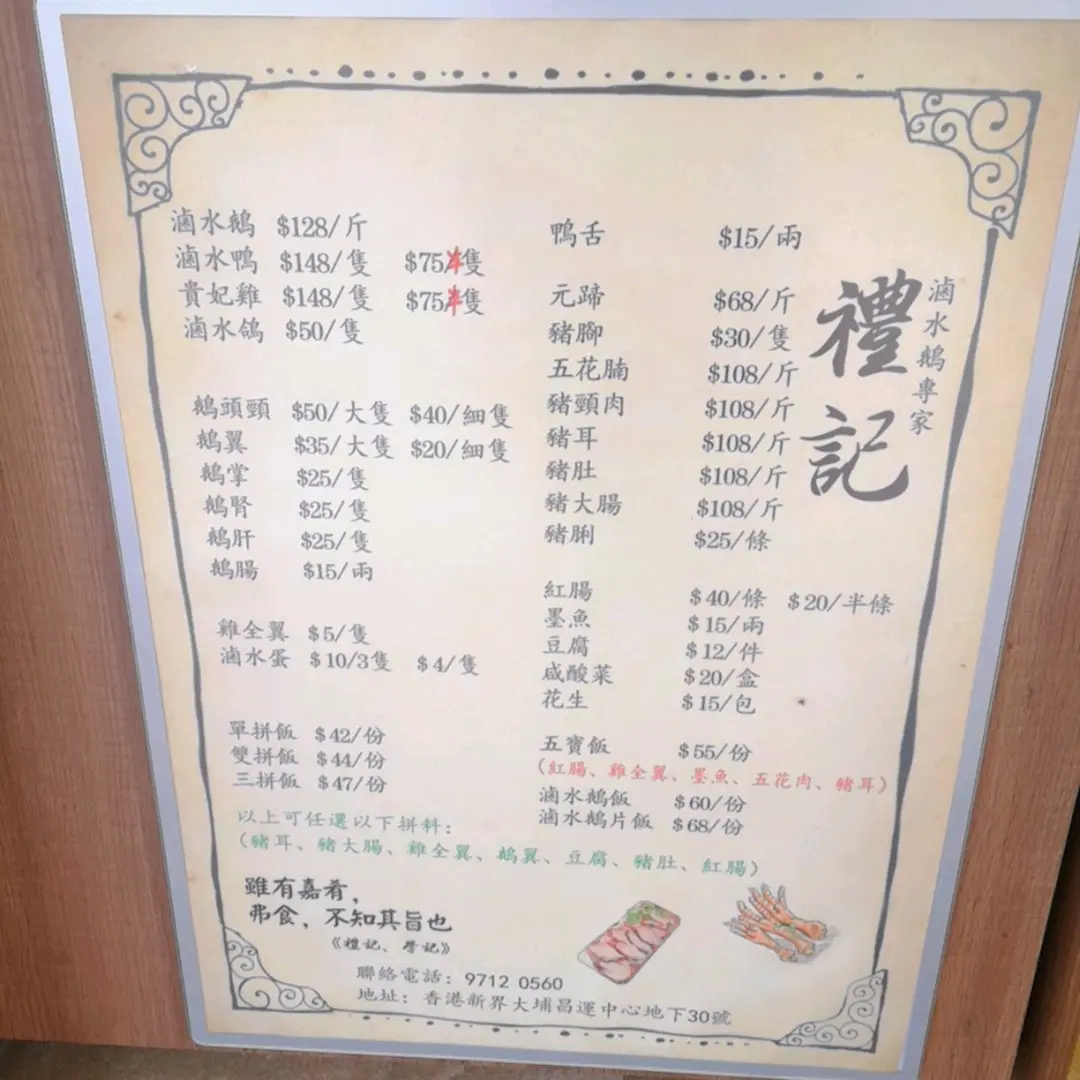 滷水鵝 $128/斤
滷水鴨 $148/隻 $75/隻
貴妃雞 $148/隻 $75/隻
滷水鴿 $50/隻
鵝頭頸 $50/大隻 $40/細隻
鵝翼 $35/大隻 $20/細隻
鵝掌 $25/隻
鵝腎 $25/隻
鵝肝 $25/隻
鵝腸 $15/兩
雞全翼 $5/隻
滷水蛋 $10/3隻 $4/隻
單拼飯 $42/份
雙拼飯 $44/份
三拼飯 $47/份
以上可任選以下拼料:
(豬耳、豬大腸、雞全翼、鵝翼、豆腐、豬肚、紅腸)
鴨舌 $15/兩
元蹄 $68/斤
豬腳 $30/隻
五花腩 $108/斤
豬頸肉 $108/斤
豬耳 $108/斤
豬肚 $108/斤
豬大腸 $108/斤
豬脷 $25/條
紅腸 $40/條 $20/半條
墨魚 $15/兩
豆腐 $12/件
咸酸菜 $20/盒
花生 $15/包
五寶飯 $55/份
(紅腸、雞全翼、墨魚、五花肉、豬耳)
滷水鵝飯 $60/份
滷水鵝片飯 $68/份
禮記
滷水鵝專家
雖有嘉肴,
弗食,不知其旨也
《禮記、學記》
聯絡電話: 9712 0560
地址: 香港新界大埔昌運中心地下30號